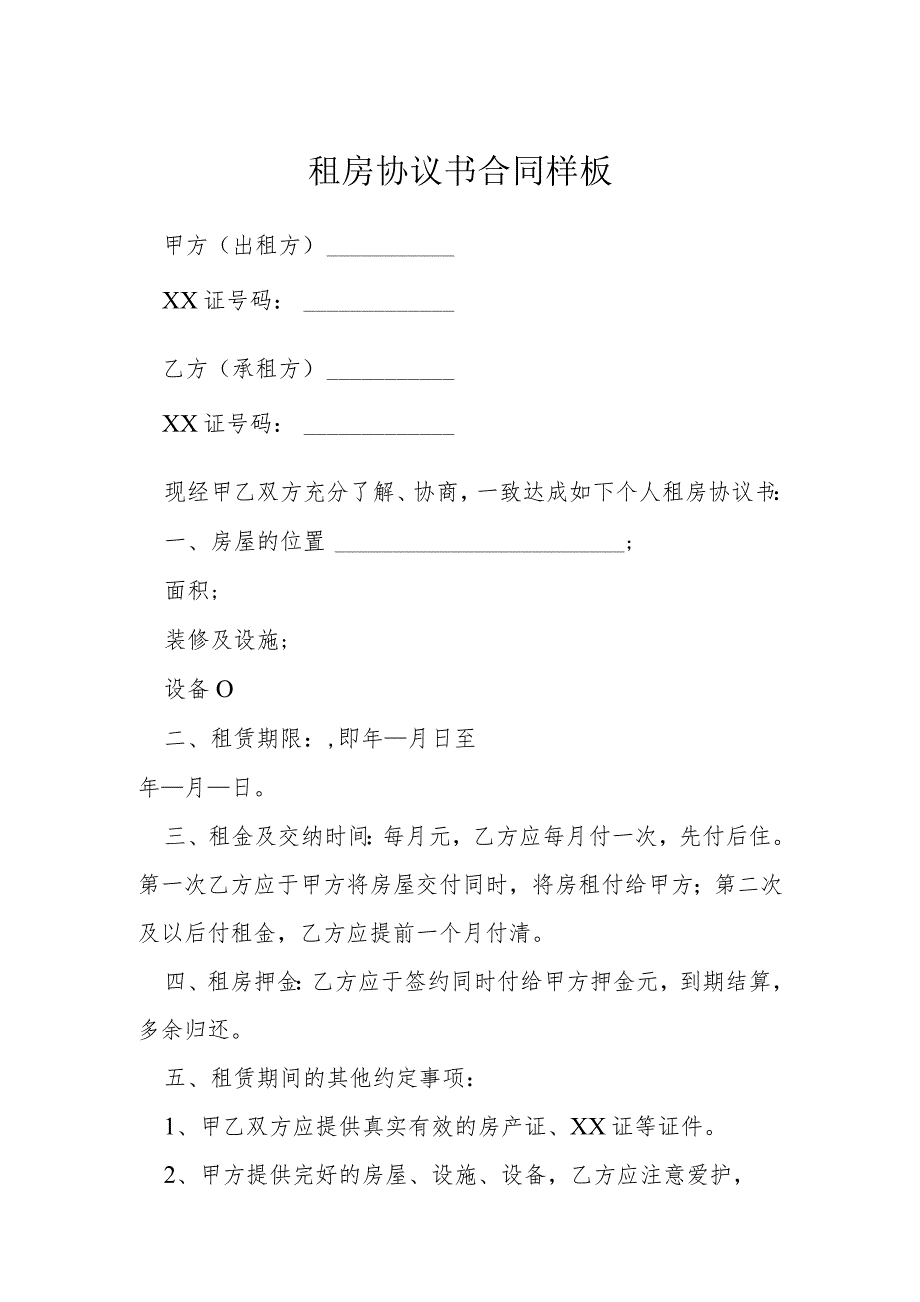 租房协议书合同样板
甲方（出租方）___________
XX证号码：_____________
乙方（承租方）___________
XX证号码：_____________
现经甲乙双方充分了解、协商，一致达成如下个人租房协议书：
一、房屋的位置_________________________；
面积；
装修及设施；
设备O
二、租赁期限：,即年—月日至
年—月—日。
三、租金及交纳时间：每月元，乙方应每月付一次，先付后住。
第一次乙方应于甲方将房屋交付同时，将房租付给甲方；第二次
及以后付租金，乙方应提前一个月付清。
四、租房押金：乙方应于签约同时付给甲方押金元，到期结算，
多余归还。
五、租赁期间的其他约定事项：
1、甲乙双方应提供真实有效的房产证、XX证等证件。
2、甲方提供完好的房屋、设施、设备，乙方应注意爱护，